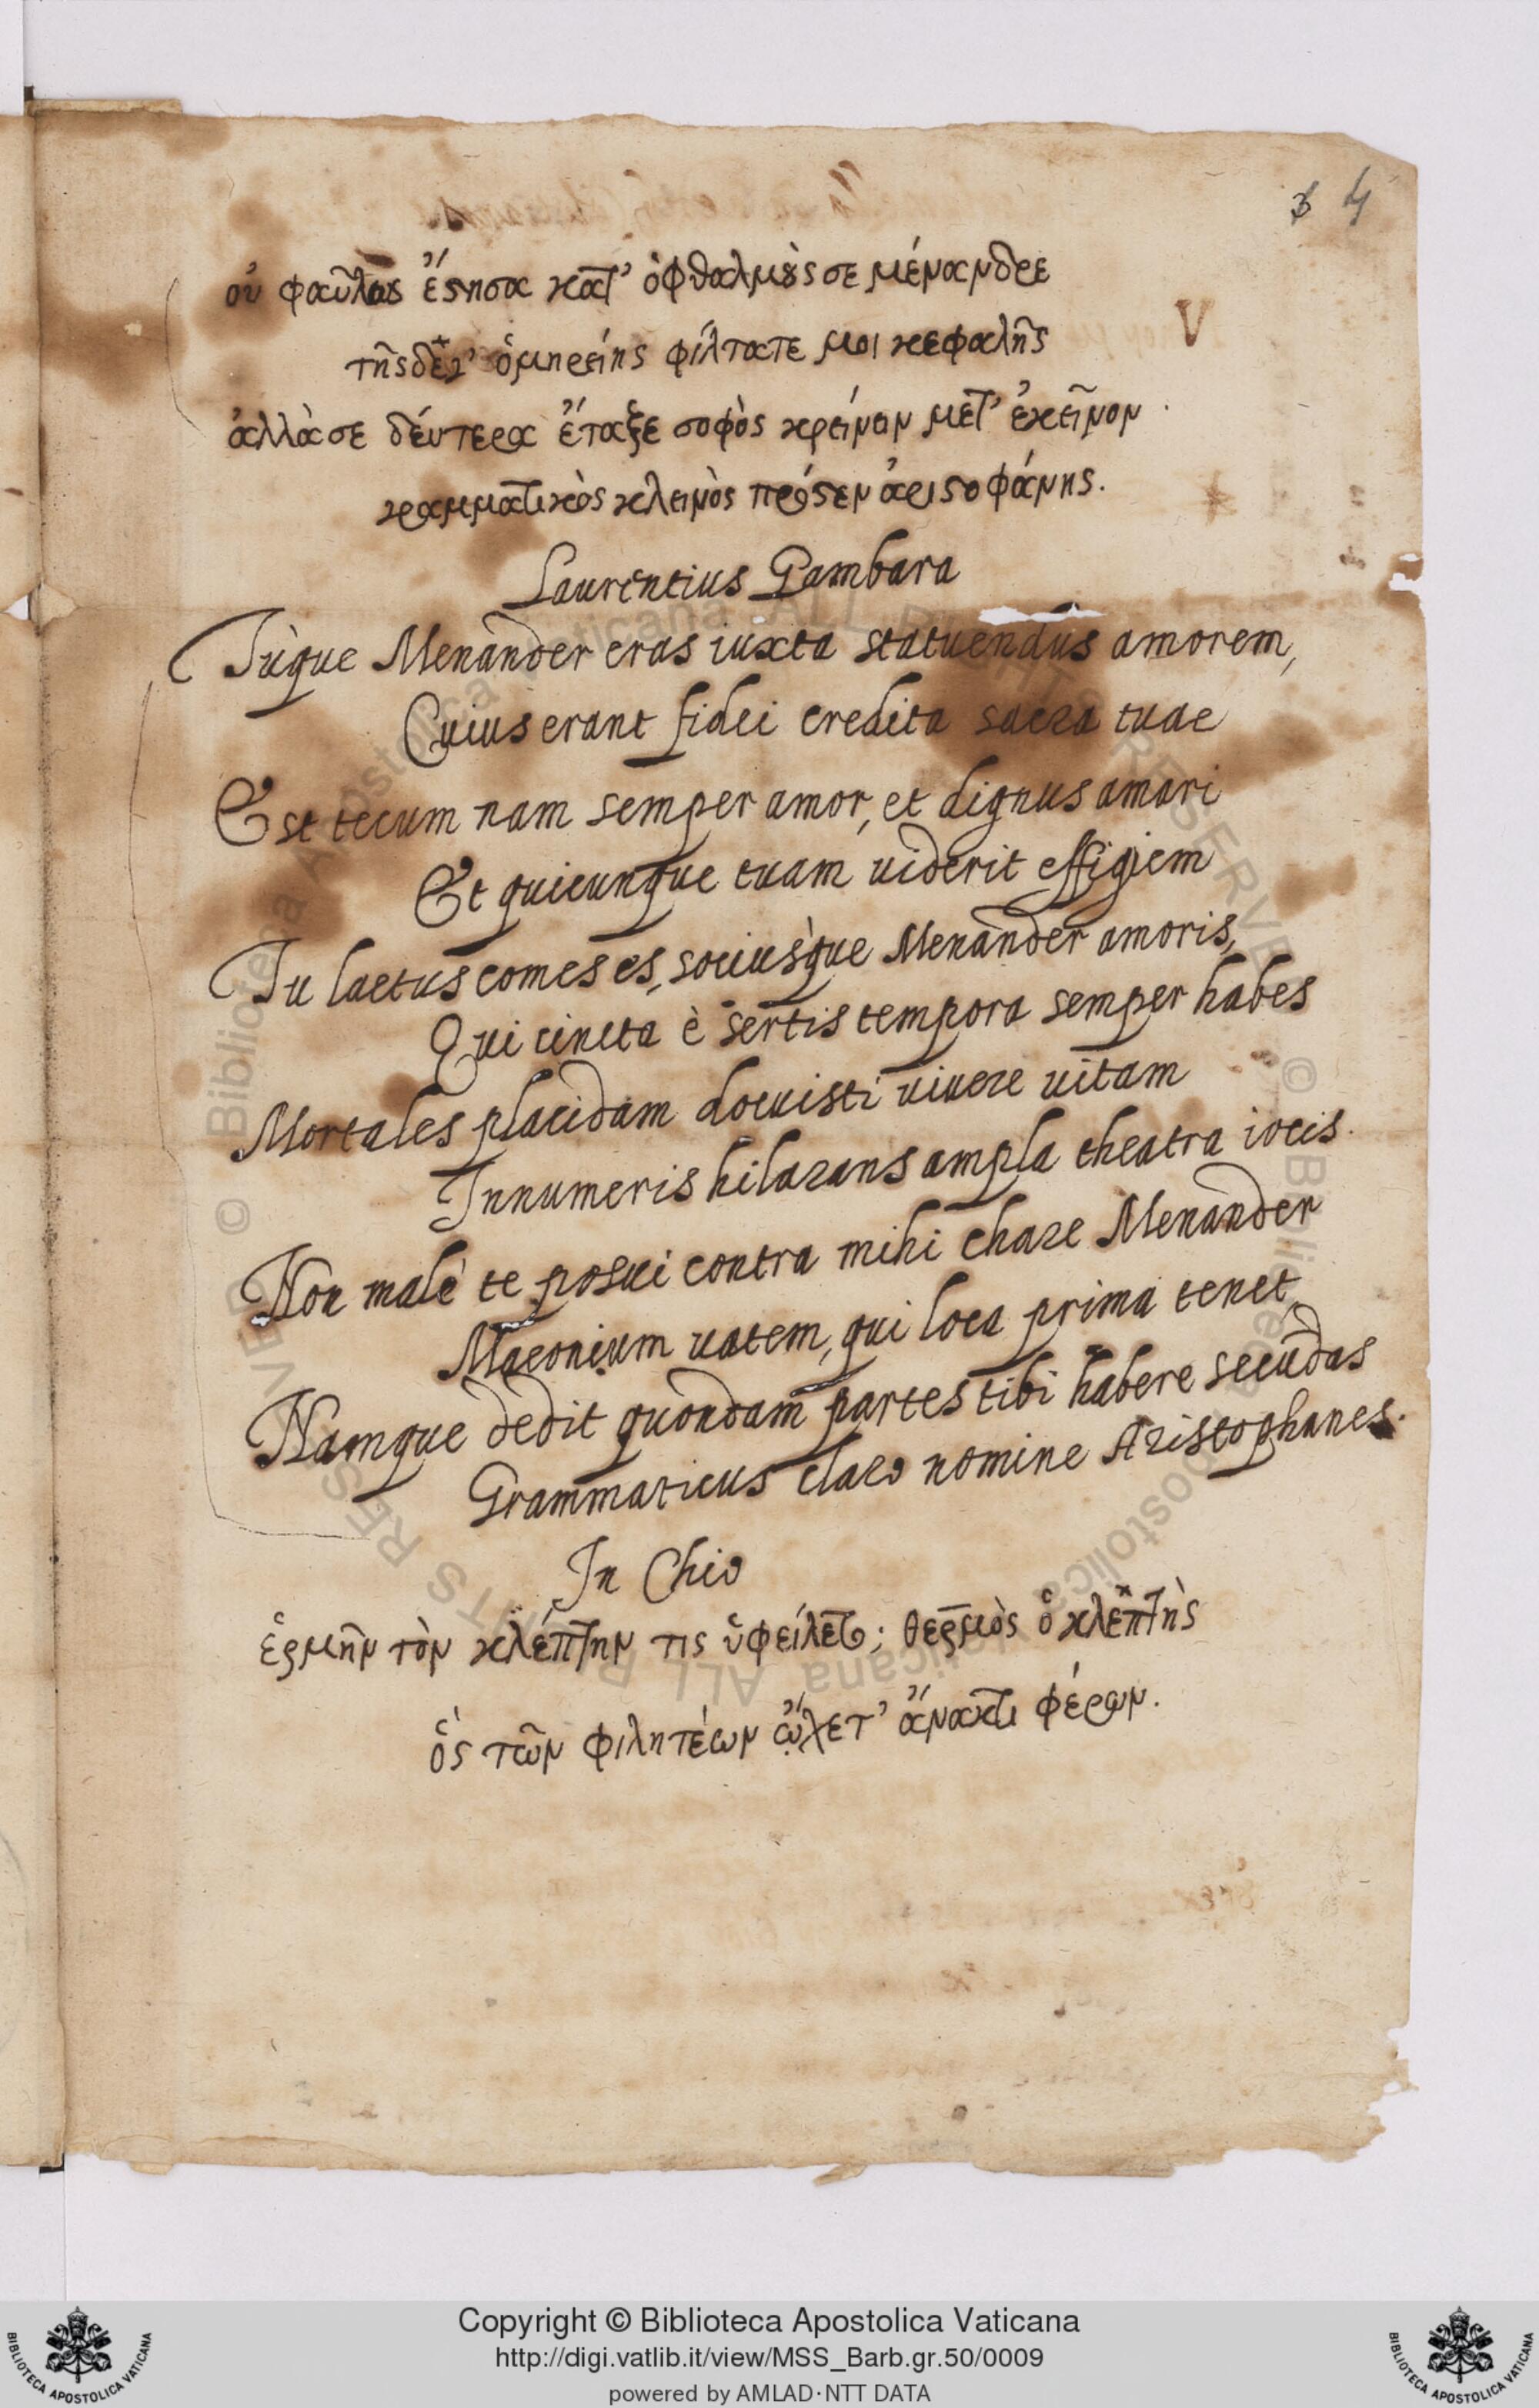 3 4
οὐ φαύλως ἔστησα κατ' ὀφθαλμοὺς σε μένανδρε
V
τῆς δέ γ' ὁμηρείης φίλτατε μοι κεφαλῆς
ἀλλὰ σε δεύτερα ἔταξε σοφὸς κρίνειν μετ' ἐκεῖνον
γραμματικὸς κλεινὸς πρόσεν ἀριστοφάνης.
Laurentius Gambara
Tùque Menander eras iuxta statuendus amorem,
Cuius erant fidei credita sacra tuae
Est tecum nam semper amor, et dignus amari
Et quicunque tuam uiderit effigiem
Tu laetus comes es, sociusque Menander amoris,
Qui cincta è sertis tempora semper habes
Mortales placidam docuisti uiuere uitam
Innumeris hilarans ampla theatra iocis.
Non malè te posui contra mihi chare Menander
Maeonium uatem, qui loca prima tenet
Namque dedit quondam partes tibi habere secūdas
Grammaticus claro nomine Aristophanes.
In Chio
ἑρμῆν τὸν κλέπτην τις ὑφείλετο; θερμὸς ὁ κλέπτης
ὃς τῶν φιλητέων ᾤχετ' ἄνακτα φέρων.
Copyright © Biblioteca Apostolica Vaticana
http://digi.vatlib.it/view/MSS_Barb.gr.50/0009
powered by AMLAD·NTT DATA
BIBLIOTECA APOSTOLICA VATICANA
BIBLIOTECA APOSTOLICA VATICANA